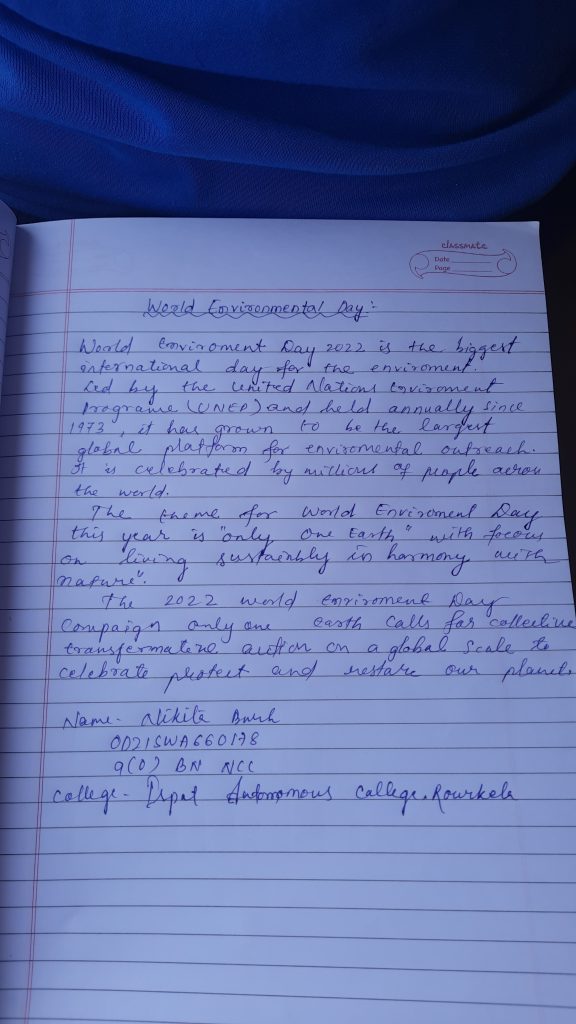 classmate
Date
Page
World Environmental Day:-
World Enviroment Day 2022 is the biggest
international day for the enviroment.
Led by the United Nations Enviroment
Programe (UNEP) and held annually since
1973, it has grown to be the largest
global platform for enviromental outreach.
It is celebrated by millions of people across
the world.
The theme for World Enviroment Day
this year is "only One Earth" with focous
on living sustainbly in harmony with
nature".
The 2022 world Enviroment Day
Compaign only one earth calls for collective
transformative action on a global scale to
celebrate protect and restore our planet.
Name- Nikita
OD21SWA660178
9(O) BN NCC
College- Ispat Autonomous College, Rourkela